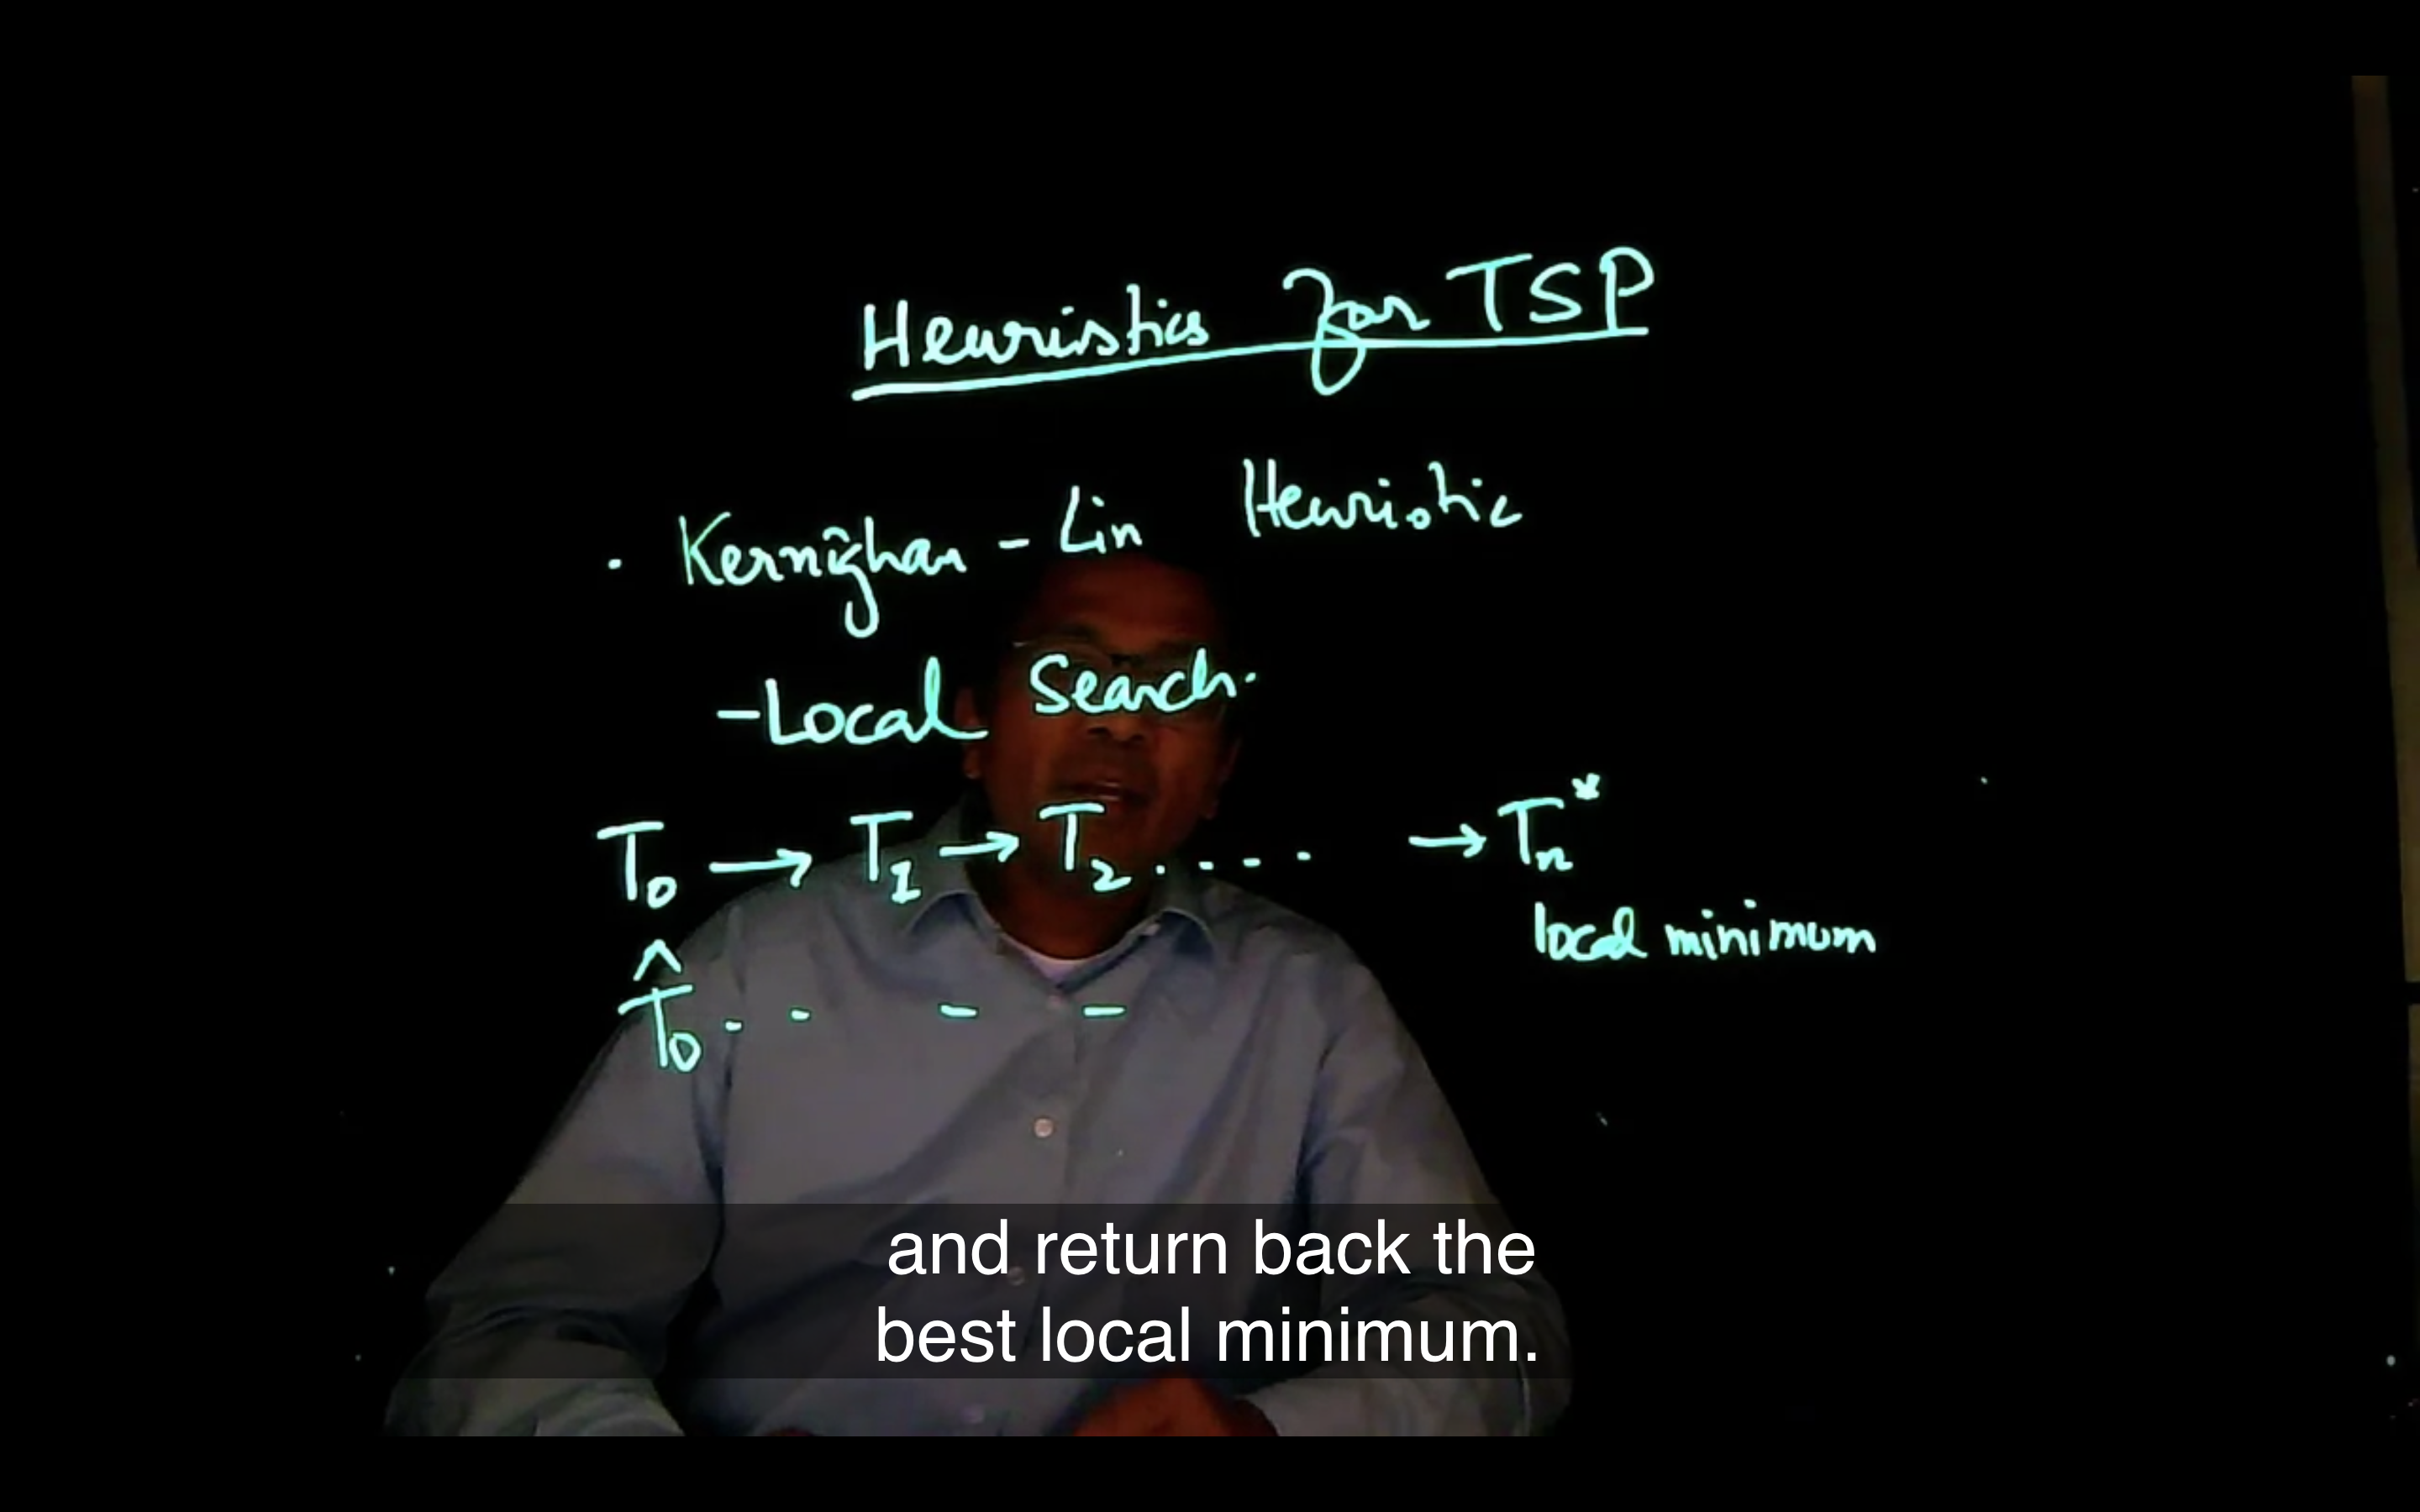 Heuristics for TSP
· Kernighan - Lin Heuristic
- Local Search.
T₀ → T₁ → T₂ .... → Tₙ*
local minimum
T̂₀ - - - -
and return back the
best local minimum.